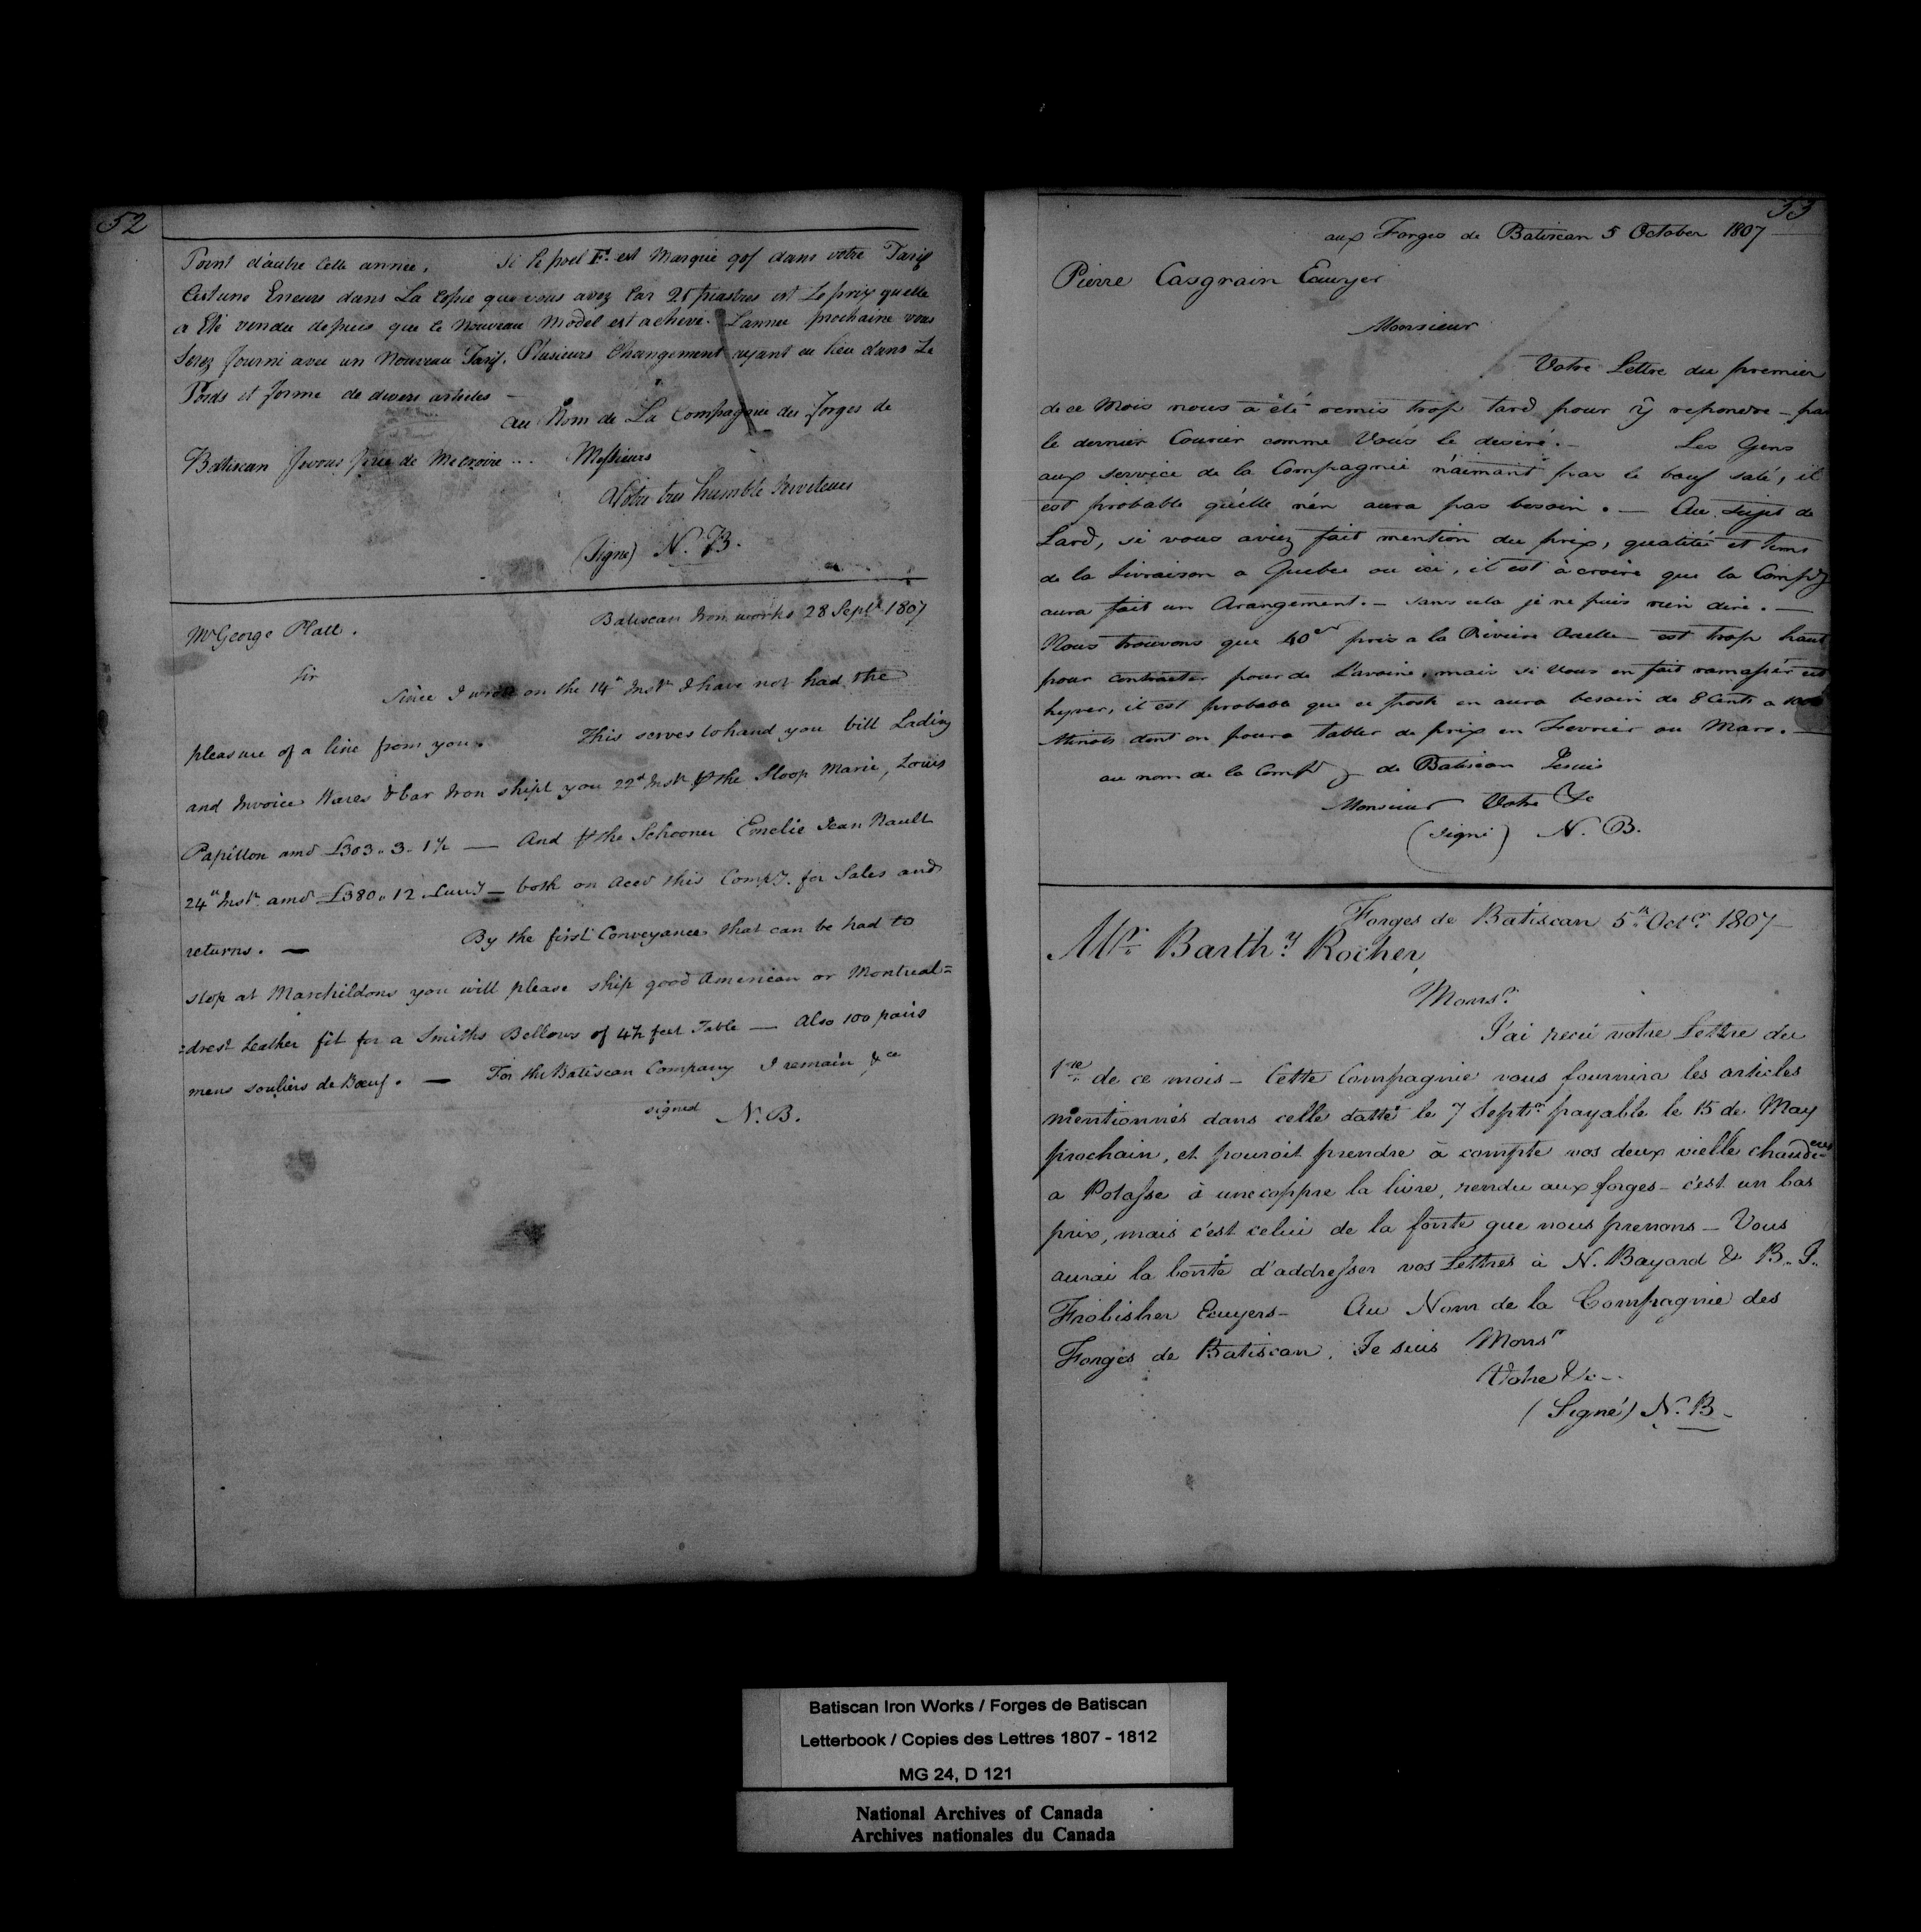 52
Point d'autre Cette année. Si le poel F. est Marqué 90/ dans votre Tarif
C'est une Erreur dans La Copie que vous avez Car 21 piastres est Le prix quelle
a Eté vendu depuis que le Nouveau Model est achevé. L'année prochaine vous
Serez fourni avec un Nouveau Tarif. Plusieurs Changement ayant eu lieu dans Le
Poids et forme de divers articles —
au Nom de La Compagnie des forges de
Batiscan Je vous prie de Me croire ... Messieurs
Votre tres humble Serviteur
(Signé) N. B.
Batiscan Iron works 28 Septr 1807
Mr George Platt.
Sir
Since I wrote on the 14th Inst I have not had the
pleasure of a line from you. This serves to hand you bill Lading
and Invoice Wares & bar Iron shipt you 22d Inst pr the Sloop Marie, Louis
Papillon amd £303. 3. 1½ — And pr the Schooner Emelie Jean Nault
24th Inst. amd £380. 12 Curry — both on Accd this Compy. for Sales and
returns. — By the first Conveyance that can be had to
stop at Marchildons you will please ship good American or Montreal=
=drest Leather fit for a Smiths Bellows of 4½ feet Table — Also 100 pairs
mens souliers de Bœuf. — For the Batiscan Company I remain &ca
signed N. B.
53
aux Forges de Batiscan 5 October 1807
Pierre Casgrain Ecuyer
Monsieur
Votre Lettre du premier
de ce Mois nous a été remis trop tard pour ÿ repondre — par
le dernier Courier comme Vous le desiré. — Les Gens
aux service de la Compagnie n'aimant pas le bœuf salé, il
est probable qu'elle n'en aura pas besoin. — Au Sujet de
Lard, si vous aviez fait mention du prix, qualité et tems
de la Livraison a Quebec ou ici, il est à croire que la Compy
aura fait un Arangement. — sans cela je ne puis rien dire. —
Nous trouvons que 40 pris a la Riviere Ouelle — est trop haut
pour contracter pour de L'avoine, mais si Vous en fait ramasser cet
hyver, il est probable que ce poste en aura besoin de 8 Cents a 1000
Minots dont on poura tabler de prix en Fevrier ou Mars. —
au nom de la Compy de Batiscan Jesuis
Monsieur Votre &c
(signé) N. B.
Forges de Batiscan 5th Octr 1807
Mr. Barthy Rocher,
Monsr
J'ai recû votre Lettre du
1re de ce mois — Cette Compagnie vous fournira les articles
mentionnés dans celle datté le 7 Septr payable le 15 de May
prochain, et pouroit prendre à compte vos deux vielle chaudieres
a Potasse à une coppre la livre, rendu aux forges — c'est un bas
prix, mais c'est celui de la fonte que nous prenons — Vous
aurai la bonté d'addresser vos Lettres à N. Bayard & B. J.
Frobisher Ecuyers — Au Nom de la Compagnie des
Forges de Batiscan, Je suis Monsr
Votre &c —
(Signé) N. B —
Batiscan Iron Works / Forges de Batiscan
Letterbook / Copies des Lettres 1807 - 1812
MG 24, D 121
National Archives of Canada
Archives nationales du Canada